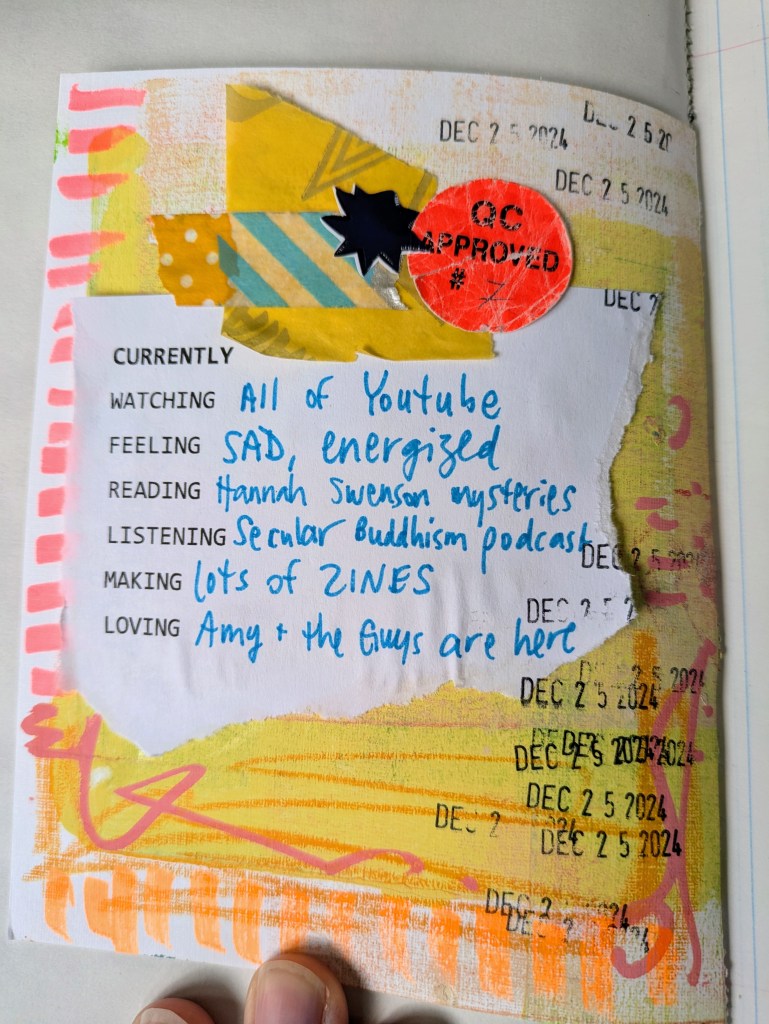 DEC 2 5 2024
DEC 2 5 20
DEC 2 5 2024
QC
APPROVED
#
DEC 2
CURRENTLY
WATCHING All of Youtube
FEELING SAD, energized
READING Hannah Swenson mysteries
LISTENING Secular Buddhism podcast
DEC 2 5 2024
MAKING lots of ZINES
DEC 2 5 2
LOVING Amy + the Guys are here
2 5 2024
DEC 2 5 2024
DEC 2 5 2024
DEC 2 5 2024
DEC 2
DEC 2 5 2024
DEC 2
DEC